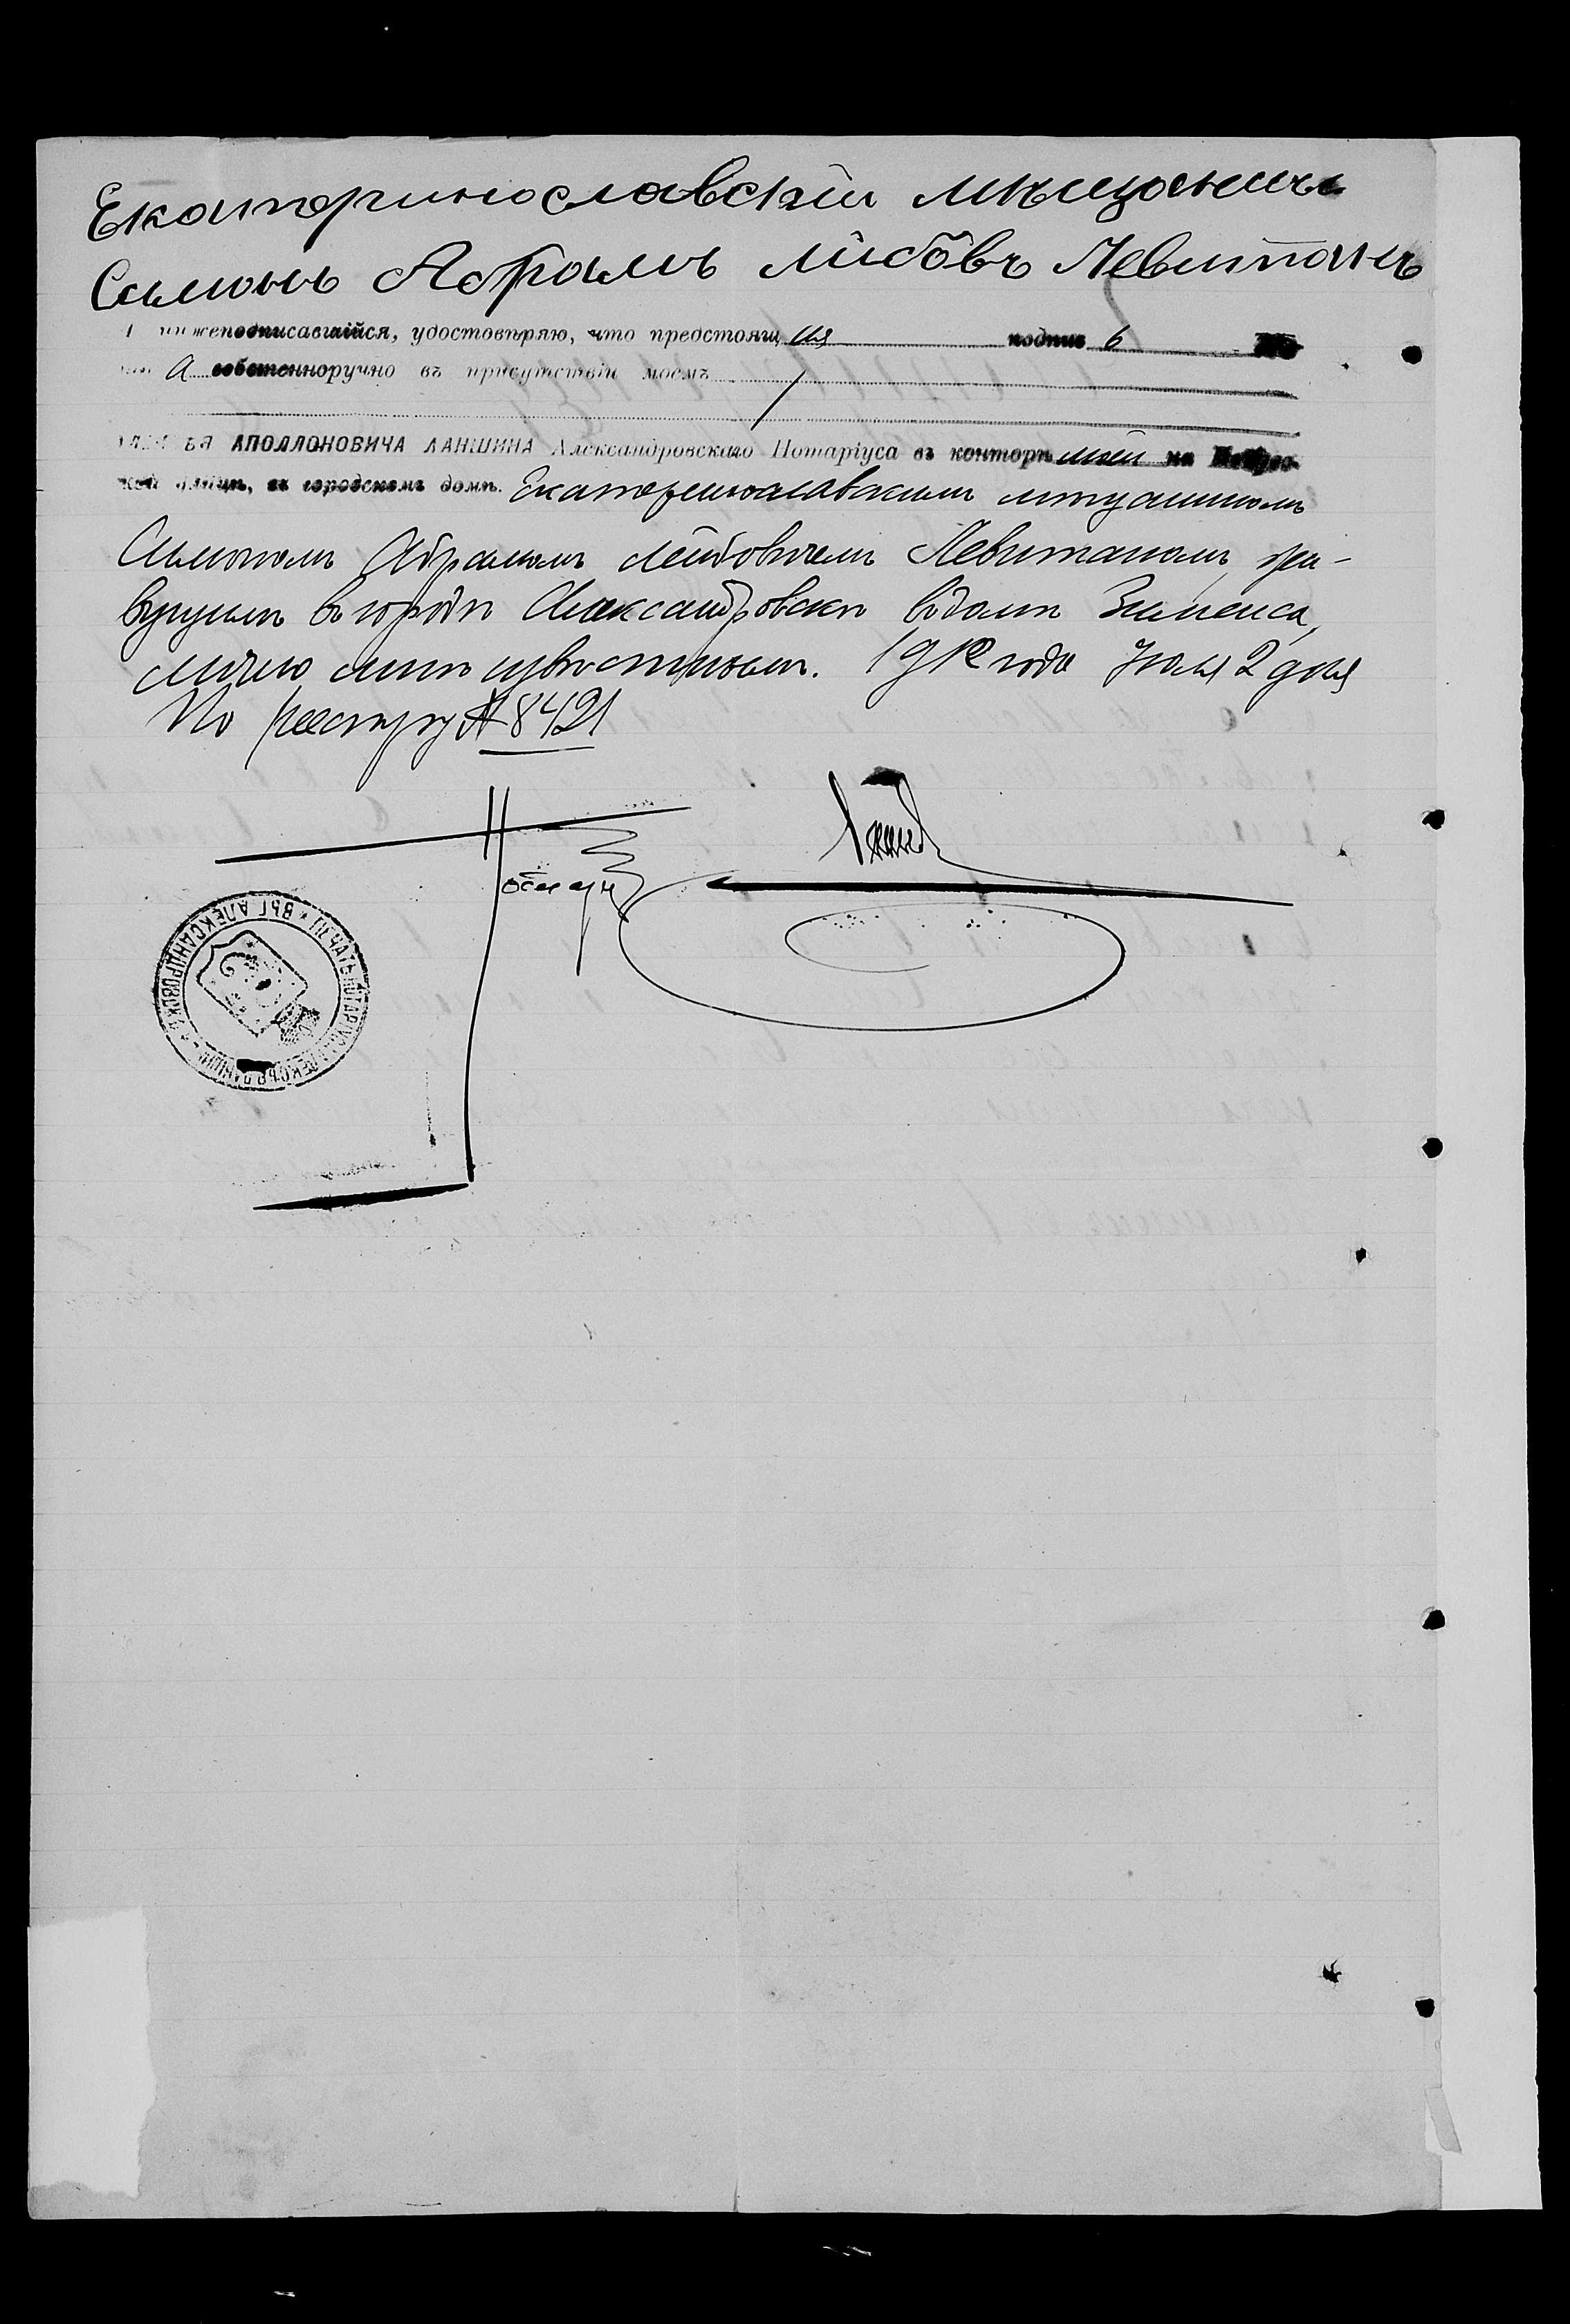 Екатеринославскій мѣщанинъ
Симонъ Абрамъ Лисбовъ Левитанъ
нижеподписавшійся, удостовѣряю, что предстоящ ая подпис ь
а собственноручно въ присутствіи моемъ
АПОЛЛОНОВИЧА ЛАНШИНА Александровскаго Нотаріуса въ конторѣ моей на
улицѣ, въ городскомъ домѣ. Екатеринославскимъ мѣщаниномъ
Симономъ Абрамомъ Лейбовичемъ Левитаномъ, жи-
вущимъ въ городѣ Александровскѣ въ домѣ Зименса,
лично мнѣ извѣстнымъ. 1912 года Іюля 2 дня
По реестру № 8421
Нотаріусъ Ланшинъ
ПЕЧАТЬ НОТАРІУСА АЛЕКСѢЯ ЛАНШИНА * ВЪ Г. АЛЕКСАНДРОВСКѢ